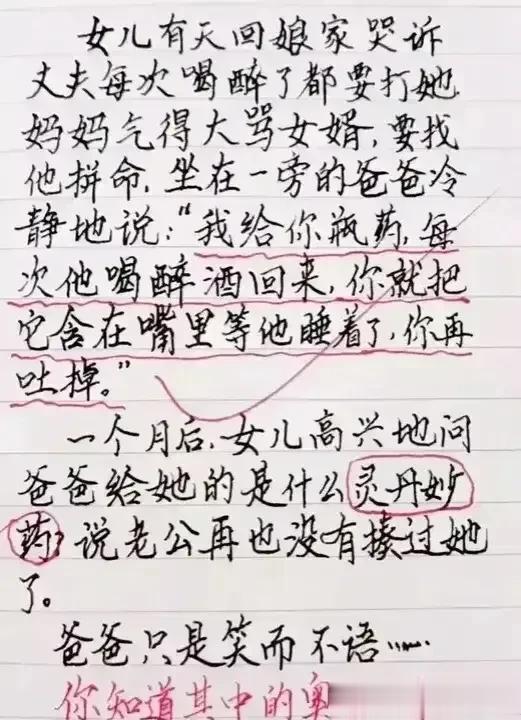 女儿有天回娘家哭诉
丈夫每次喝醉了都要打她
妈妈气得大骂女婿,要找
他拼命,坐在一旁的爸爸冷
静地说:“我给你瓶药,每
次他喝醉酒回来,你就把
它含在嘴里等他睡着了,你再
吐掉。”
一个月后,女儿高兴地问
爸爸给她的是什么灵丹妙
药?说老公再也没有揍过她
了。
爸爸只是笑而不语……
你知道其中的奥